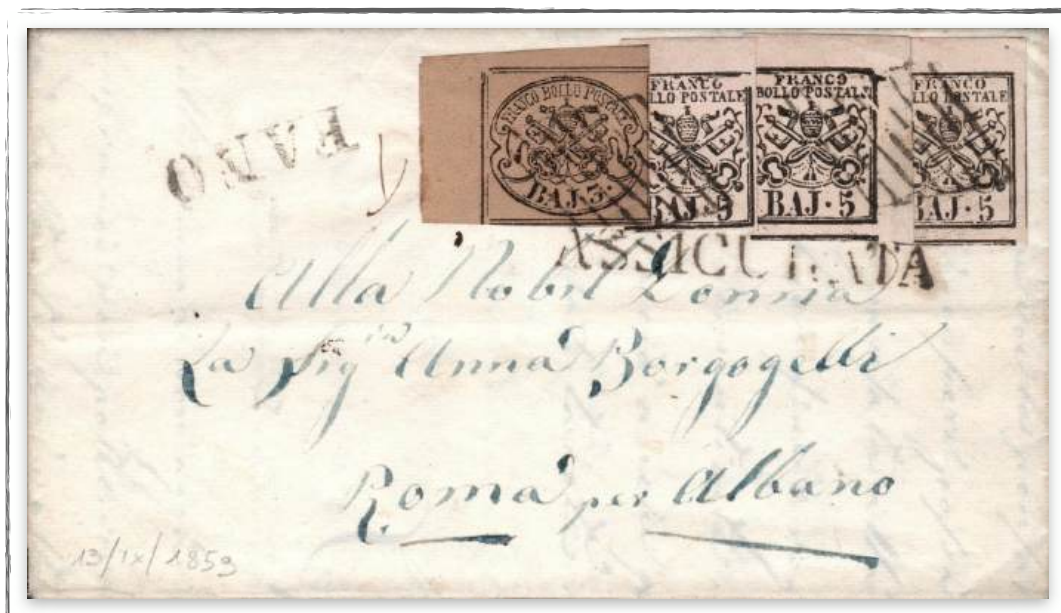 FRANCO BOLLO POSTALE
BAJ. 3.
FRANCO
LLO POSTALE
BAJ · 5
FRANCO
BOLLO POSTALE
BAJ · 5
FRANCO
LLO POSTALE
BAJ · 5
FANO
ASSICURATA
Alla Nobil Donna
La Sigra Anna Borgogelli
Roma per Albano
13/IX/1859